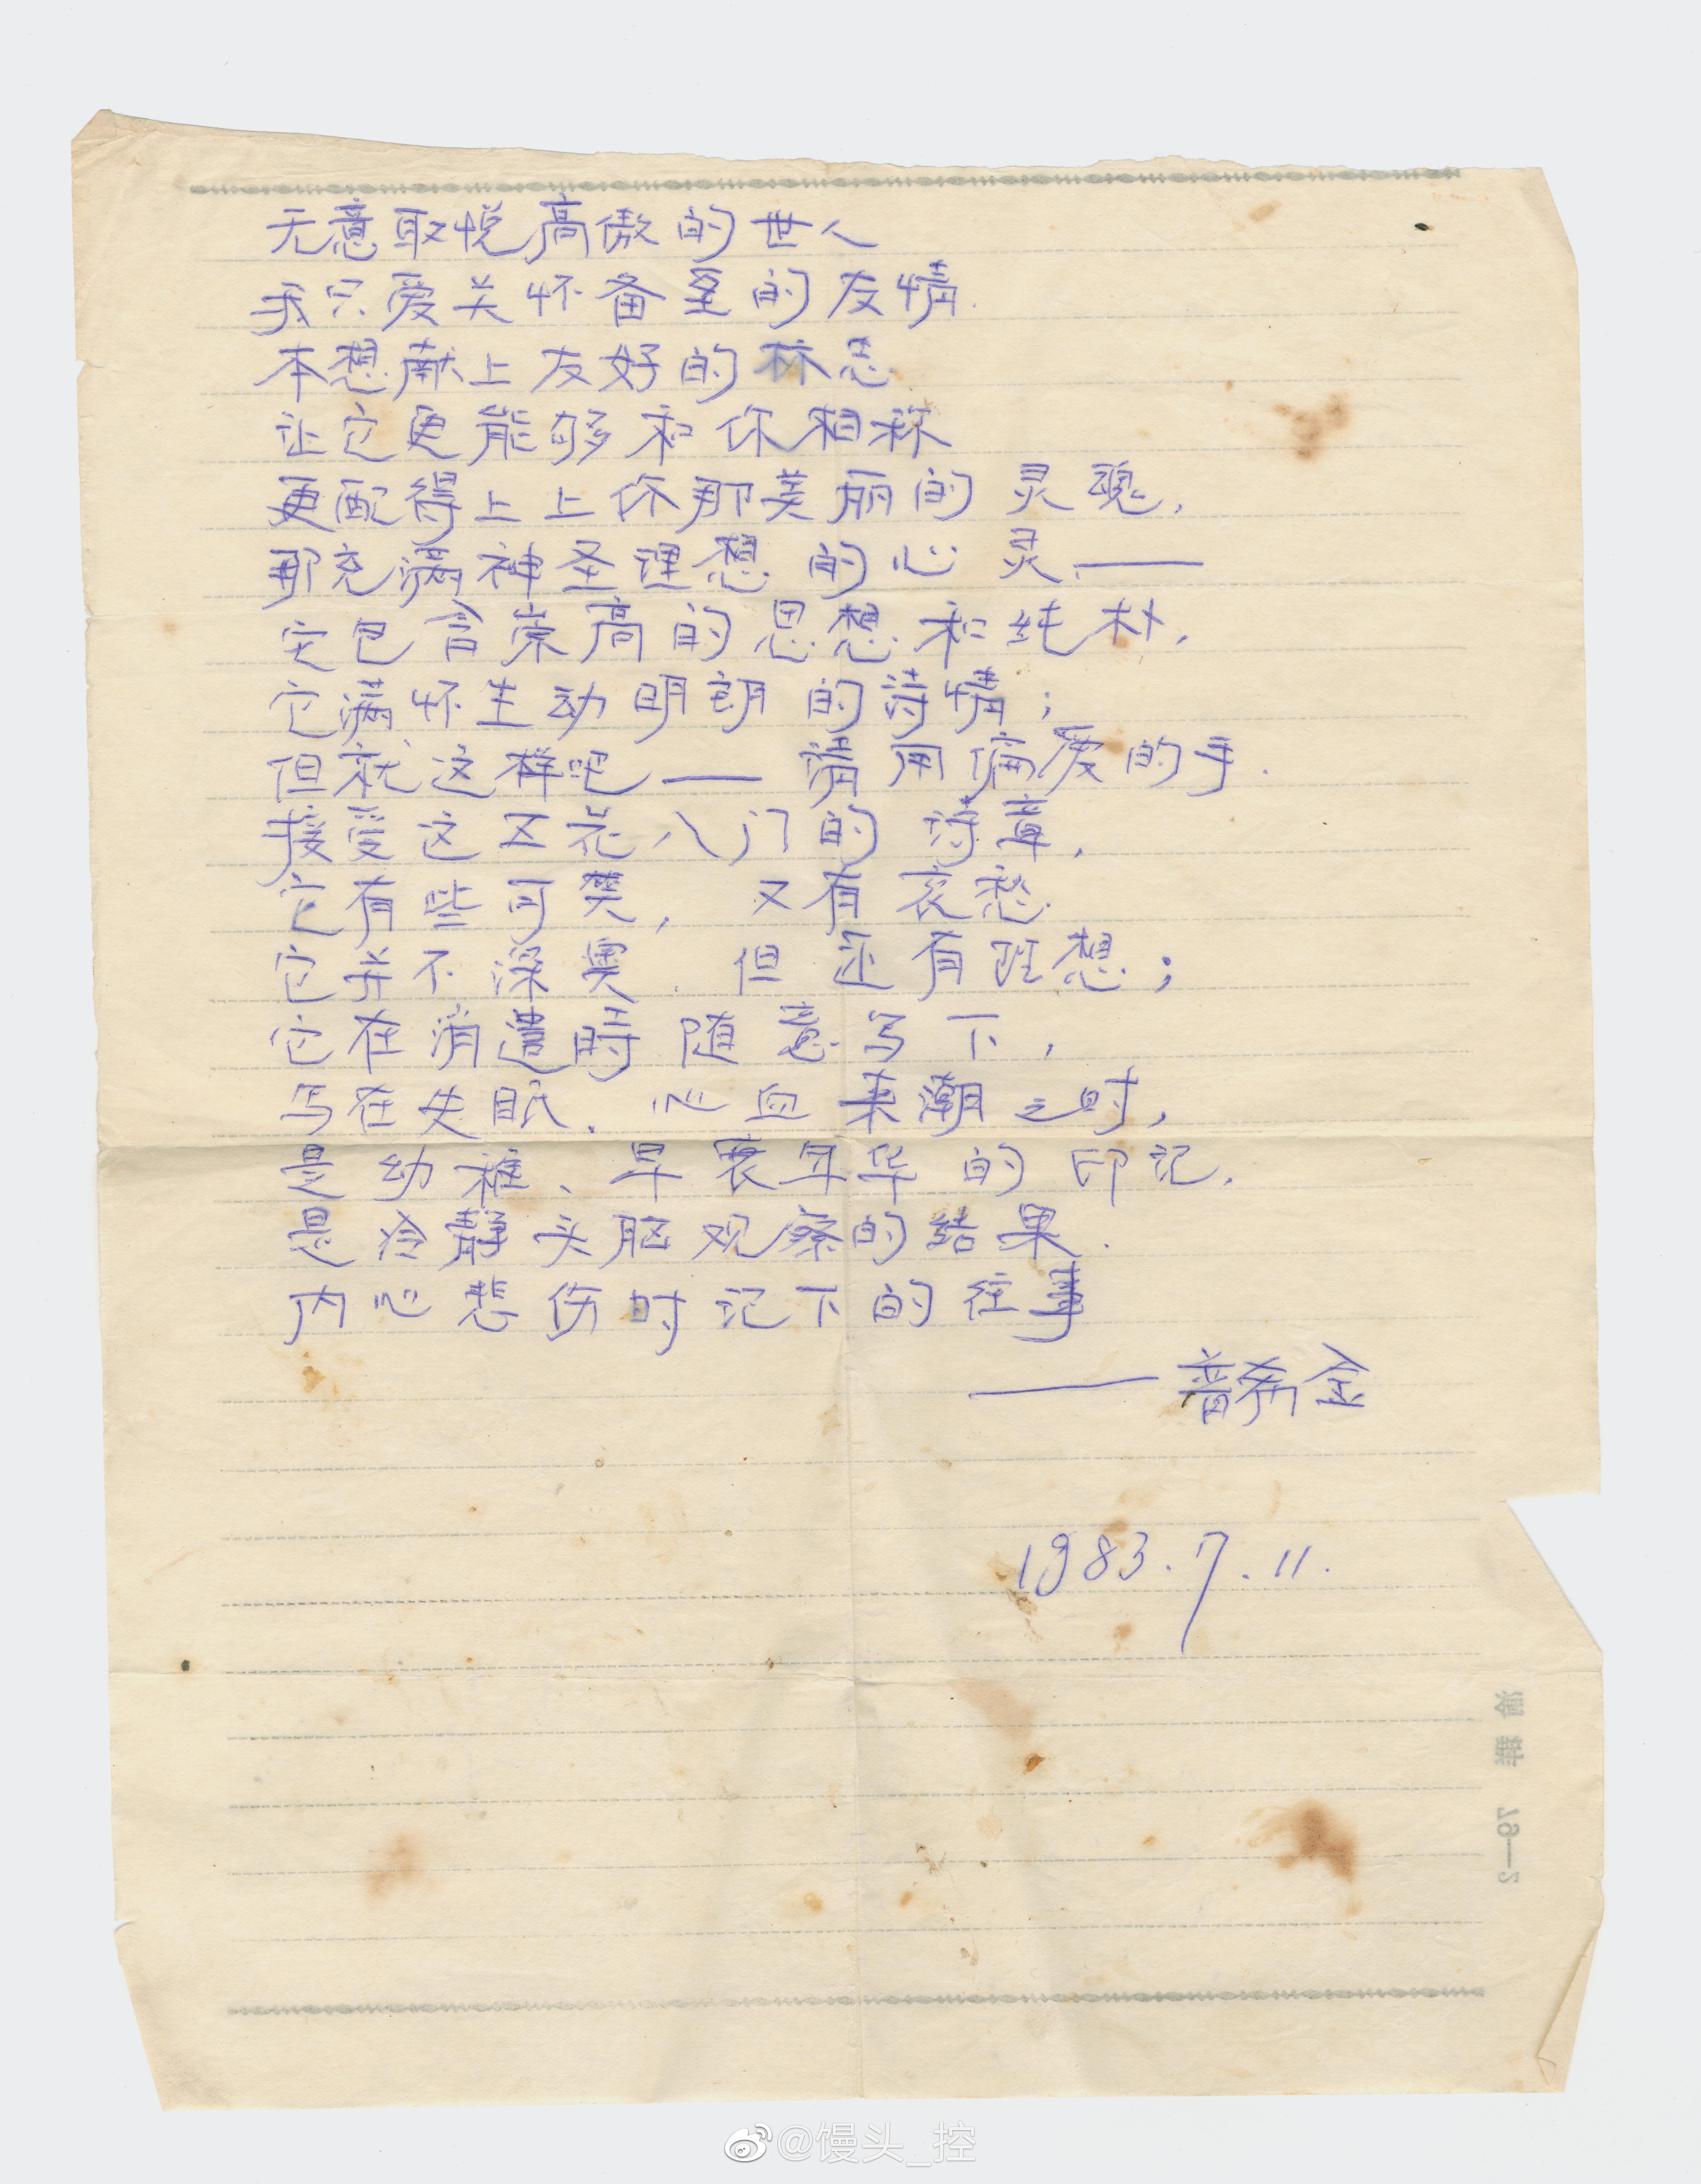 无意取悦高傲的世人
我只爱关怀备至的友情.
本想献上友好的标志
让它更能够和你相称
更配得上上你那美丽的灵魂,
那充满神圣理想的心灵——
它包含崇高的思想和纯朴,
它满怀生动明朗的诗情;
但就这样吧——请用偏爱的手.
接受这五花八门的诗章,
它有些可笑, 又有哀愁
它并不深奥. 但还有理想;
它在消遣時随意写下,
写在失眠、心血来潮之时,
是幼稚、早衰年华的印记.
是冷静头脑观察的结果.
内心悲伤时记下的往事
——普希金
1983.7.11.
79—2
@馒头_控